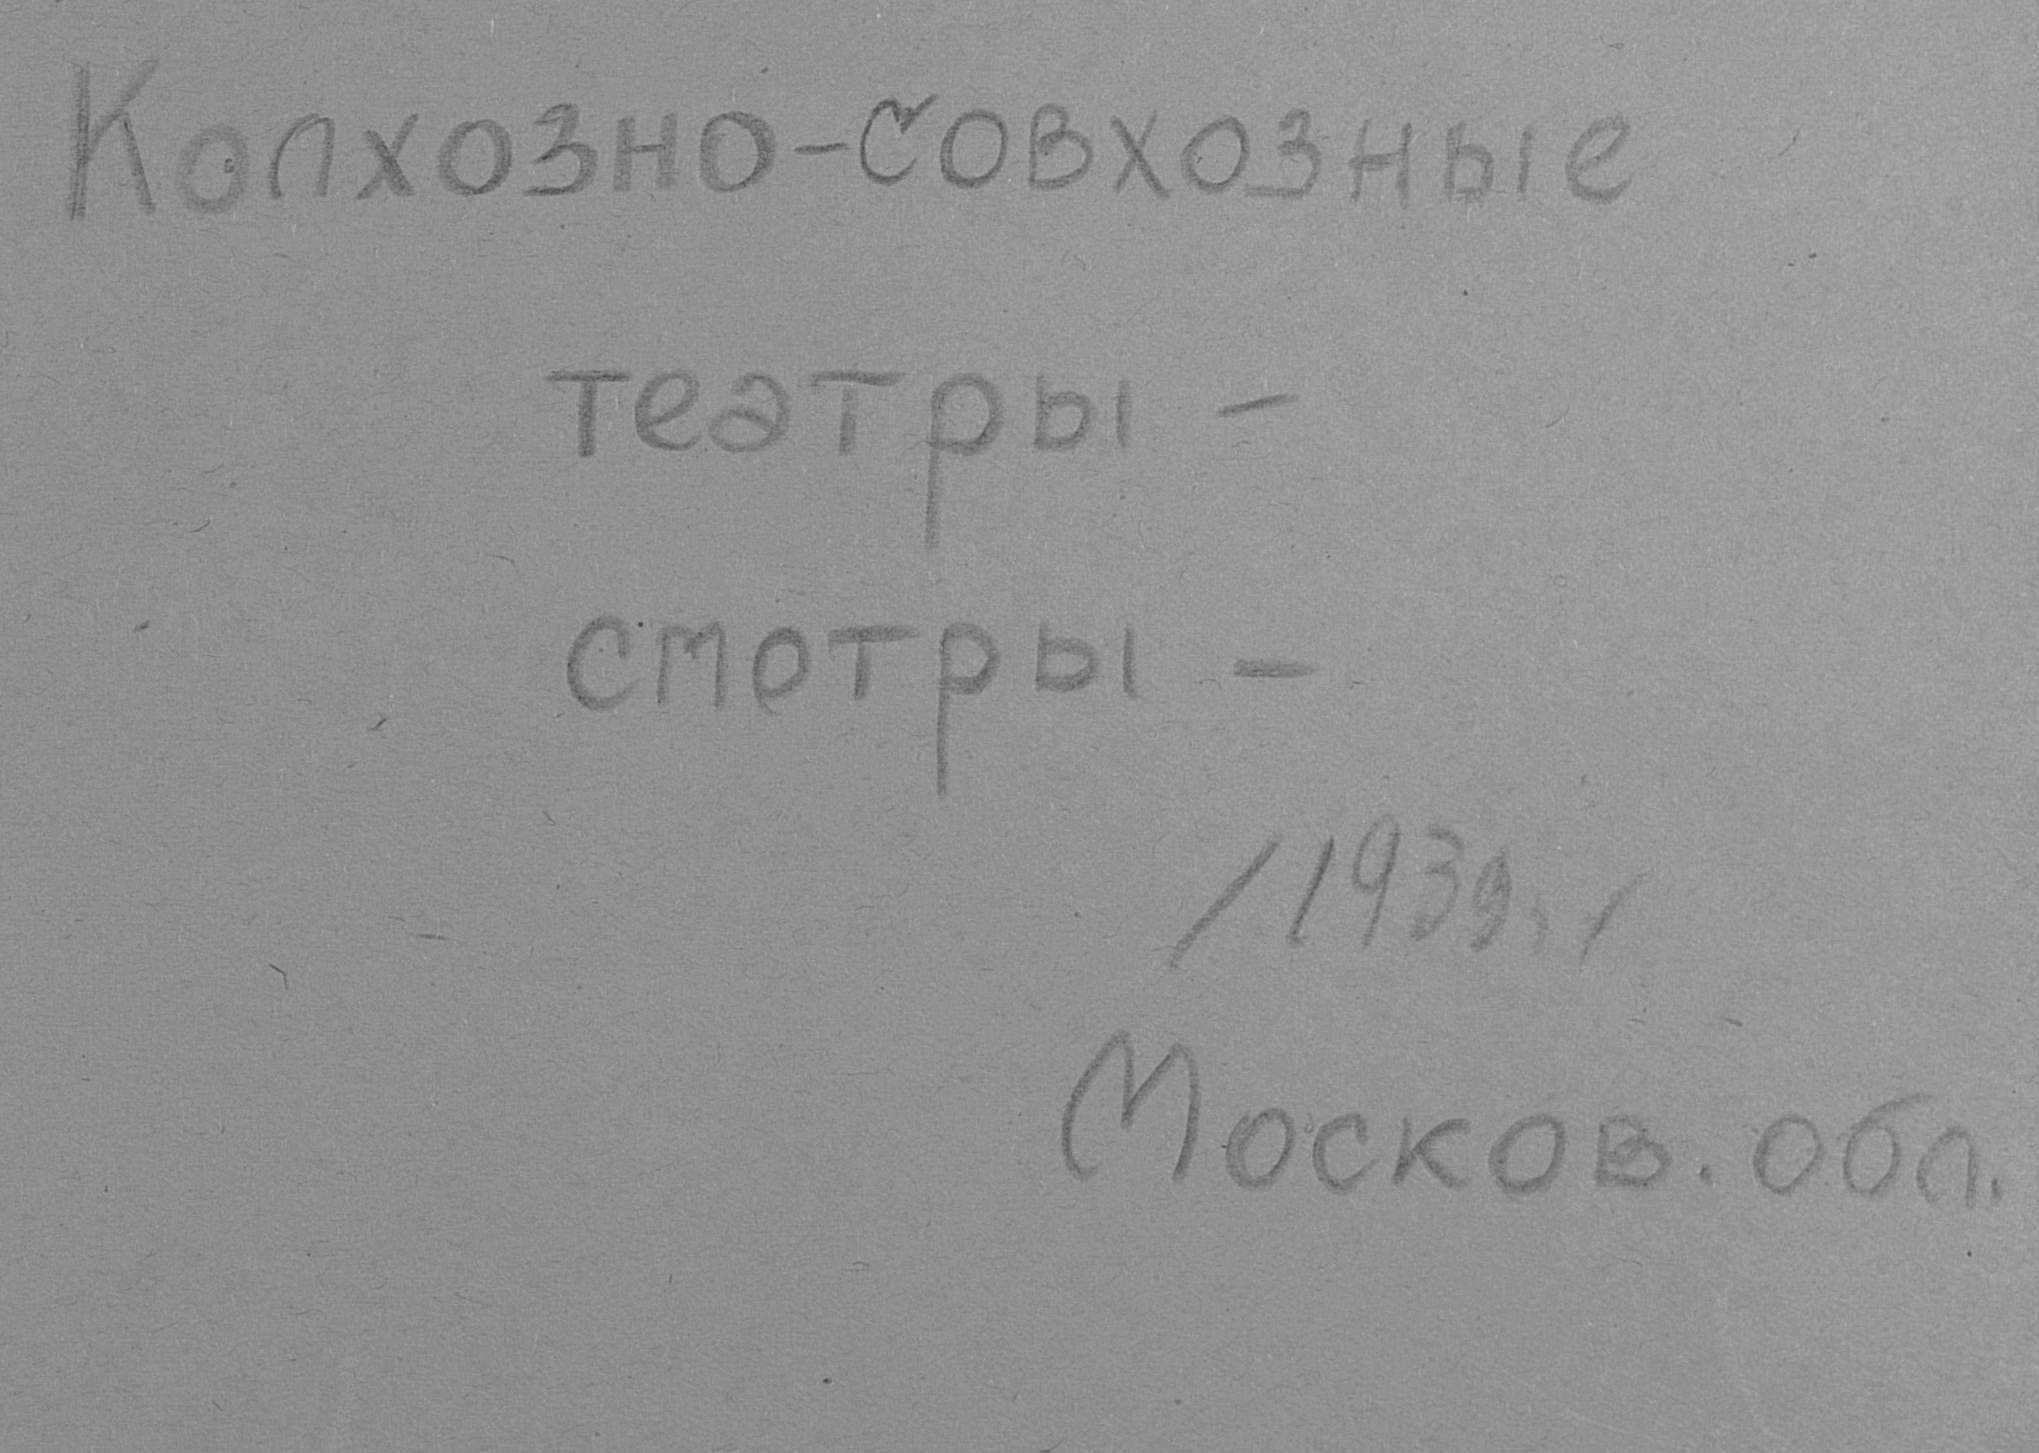 Колхозно-совхозные
театры -
смотры -
/1939г/
Москов. обл.